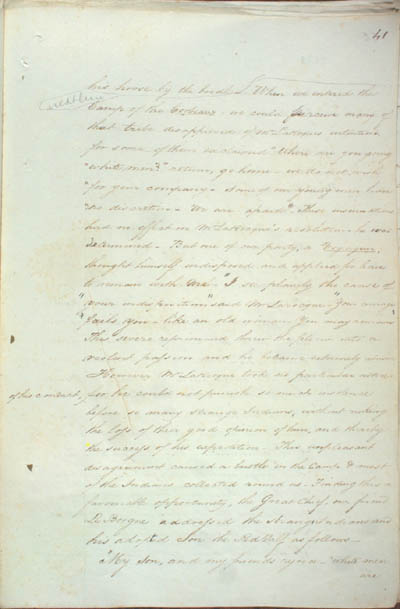 41
his horse by the bridle. When we entered the
Camp of the Corbeaux we could perceive many of
that tribe disapproved of Mr Larocque's intention
for some of them exclaimed "Where are you going
"white men? return, go home - we do not wish
"for your company - Some of our young men have
"no discretion - We are afraid". These
had no effect on Mr LaRocque's resolution - he was
determined - But one of our party, a Voyageur,
thought himself indisposed and applied for leave
to remain with me - "I see plainly the cause of
"your indisposition" said Mr Larocque "Your courage
"fails you - like an old woman You may remain
This severe reprimand threw the fellow into a
violent passion and he became extremely
However Mr Larocque took no particular notice
of his conduct, for he could not punish so much insolence
before so many strange Indians, without risking
the loss of their good opinion of him, and thereby
the success of his expedition - This unpleasant
disagreement caused a bustle in the Camp & most
of the Indians collected round us - Finding this a
favourable opportunity, the Great Chief, our friend
Le Borgne addressed the strange Indians and
his adopted Son the Red Calf as follows -
"My Son, and my friends rejoice - "White men
are